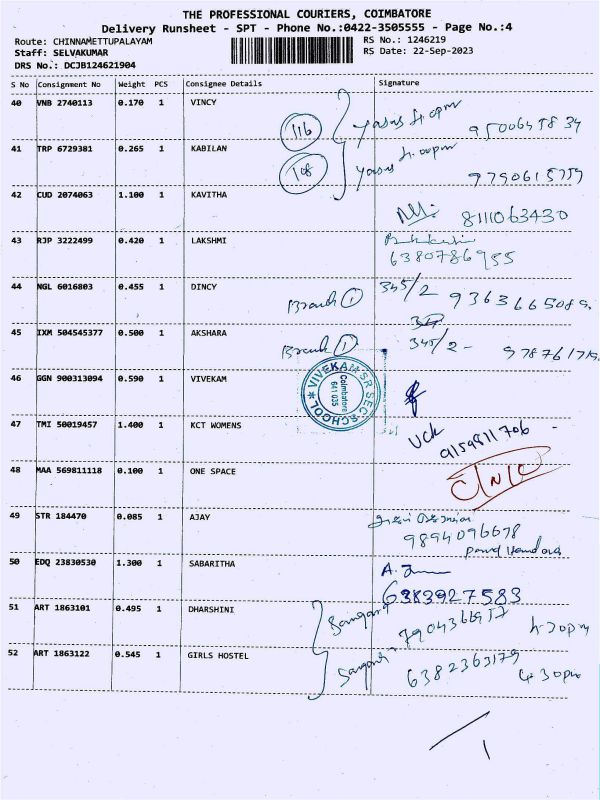 THE PROFESSIONAL COURIERS, COIMBATORE
Delivery Runsheet - SPT - Phone No.:0422-3505555 - Page No.:4
Route: CHINNAMETTUPALAYAM
RS No.: 1246219
Staff: SELVAKUMAR
RS Date: 22-Sep-2023
DRS No.: DCJB124621904
S No Consignment No Weight PCS Consignee Details Signature
40 VNB 2740113 0.170 1 VINCY
116
41 TRP 6729381 0.265 1 KABILAN
108
42 CUD 2074063 1.100 1 KAVITHA
8111063430
43 RJP 3222499 0.420 1 LAKSHMI
6380786955
44 NGL 6016803 0.455 1 DINCY
Branch 1 345/2
45 IXM 504545377 0.500 1 AKSHARA
Branch 1 345/2 -
46 GGN 900313094 0.590 1 VIVEKAM
VIVEKAM SR SEC SCHOOL
Coimbatore
641 035
47 TMI 50019457 1.400 1 KCT WOMENS
9159811706
48 MAA 569811118 0.100 1 ONE SPACE
49 STR 184470 0.085 1 AJAY
9894096678
50 EDQ 23830530 1.300 1 SABARITHA
6383927583
51 ART 1863101 0.495 1 DHARSHINI
7904366957
52 ART 1863122 0.545 1 GIRLS HOSTEL
6382363179 4.30pm